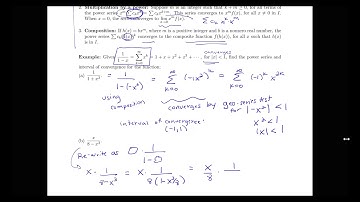 2. Multiplication by a power: Suppose m is an integer such that k + m ≥ 0, for all terms of
the power series x^m Σ c_k x^k = Σ c_k x^{k+m}. This series converges to x^m f(x), for all x ≠ 0 in I.
When x = 0, the series converges to lim x^m f(x).
Σ c_k x^k
3. Composition: If h(x) = bx^m, where m is a positive integer and b is a nonzero real number, the
power series Σ c_k (h(x))^k converges to the composite function f(h(x)), for all x such that h(x)
is in I.
converges
Example: Given 1/(1 - x) = Σ x^k = 1 + x + x^2 + x^3 + ⋯, for |x| < 1, find the power series and
interval of convergence for the function.
(a) 1/(1 + x^2) = 1/(1-(-x^2)) = Σ_{k=0}^∞ (-1x^2)^k = Σ_{k=0}^∞ (-1)^k x^{2k}
using
composition
converges by geo-series test
for |-x^2| < 1
x^2 < 1
|x| < 1
interval of convergence:
(-1,1)
(b) x/(8 - x^3)
Re-write as □ · 1/(1-□)
x · 1/(8-x^3) = x · 1/(8(1-x^3/8)) = x/8 · 1